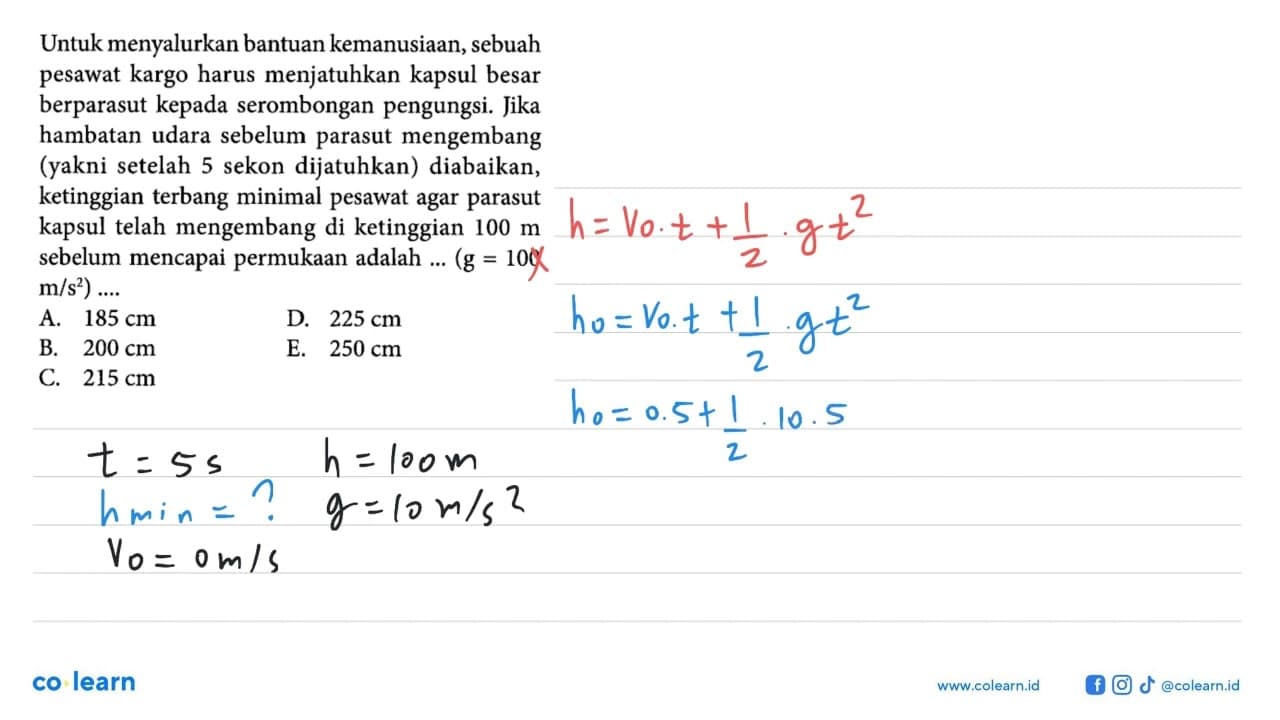 Untuk menyalurkan bantuan kemanusiaan, sebuah
pesawat kargo harus menjatuhkan kapsul besar
berparasut kepada serombongan pengungsi. Jika
hambatan udara sebelum parasut mengembang
(yakni setelah 5 sekon dijatuhkan) diabaikan,
ketinggian terbang minimal pesawat agar parasut
kapsul telah mengembang di ketinggian 100 m
sebelum mencapai permukaan adalah ... (g = 100
m/s²) ....
A. 185 cm D. 225 cm
B. 200 cm E. 250 cm
C. 215 cm
t = 5 s h = 100 m
h min = ? g = 10 m/s²
Vo = 0 m/s
h = Vo.t + 1/2 . gt²
ho = Vo.t + 1/2 . gt²
ho = 0.5 + 1/2 . 10.5
co learn
www.colearn.id
@colearn.id